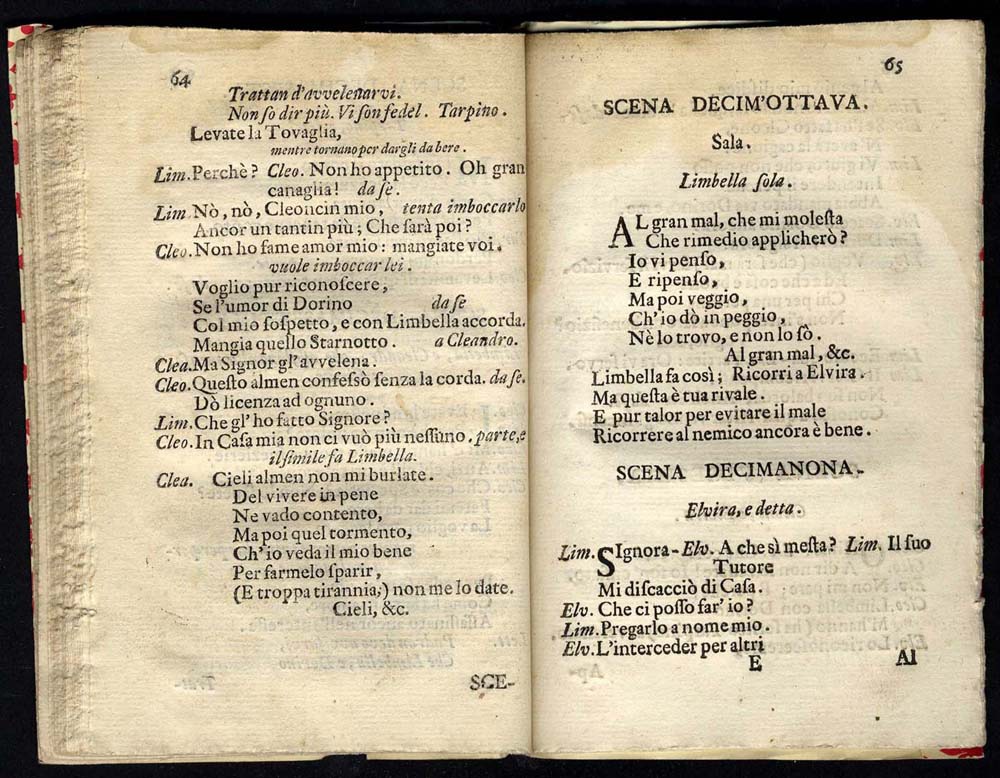 64
Trattan d'avvelenarvi.
Non so dir più. Vi son fedel. Tarpino.
Levate la Tovaglia,
mentre tornano per dargli da bere.
Lim. Perchè? Cleo. Non ho appetito. Oh gran
canaglia! da sè.
Lim. Nò, nò, Cleoncin mio, tenta imboccarlo
Ancor un tantin più; Che sarà poi?
Cleo. Non ho fame amor mio: mangiate voi.
vuole imboccar lei.
Voglio pur riconoscere,
Se l'umor di Dorino da sè
Col mio sospetto, e con Limbella accorda.
Mangia quello Starnotto. a Cleandro.
Clea. Ma Signor gl'avvelena.
Cleo. Questo almen confessò senza la corda. da se.
Dò licenza ad ognuno.
Lim. Che gl'ho fatto Signore?
Cleo. In Casa mia non ci vuò più nessuno. parte, e
il simile fa Limbella.
Clea. Cieli almen non mi burlate.
Del vivere in pene
Ne vado contento,
Ma poi quel tormento,
Ch'io veda il mio bene
Per farmelo sparir,
(E troppa tirannia;) non me lo date.
Cieli, &c.
SCE-
65
SCENA DECIM'OTTAVA.
Sala.
Limbella sola.
AL gran mal, che mi molesta
Che rimedio applicherò?
Io vi penso,
E ripenso,
Ma poi veggio,
Ch'io dò in peggio,
Nè lo trovo, e non lo sò.
Al gran mal, &c.
Limbella fa così; Ricorri a Elvira.
Ma questa è tua rivale.
E pur talor per evitare il male
Ricorrere al nemico ancora è bene.
SCENA DECIMANONA.
Elvira, e detta.
Lim. SIgnora- Elv. A che sì mesta? Lim. Il suo
Tutore
Mi discacciò di Casa.
Elv. Che ci posso far'io?
Lim. Pregarlo a nome mio.
Elv. L'interceder per altri
E
Al